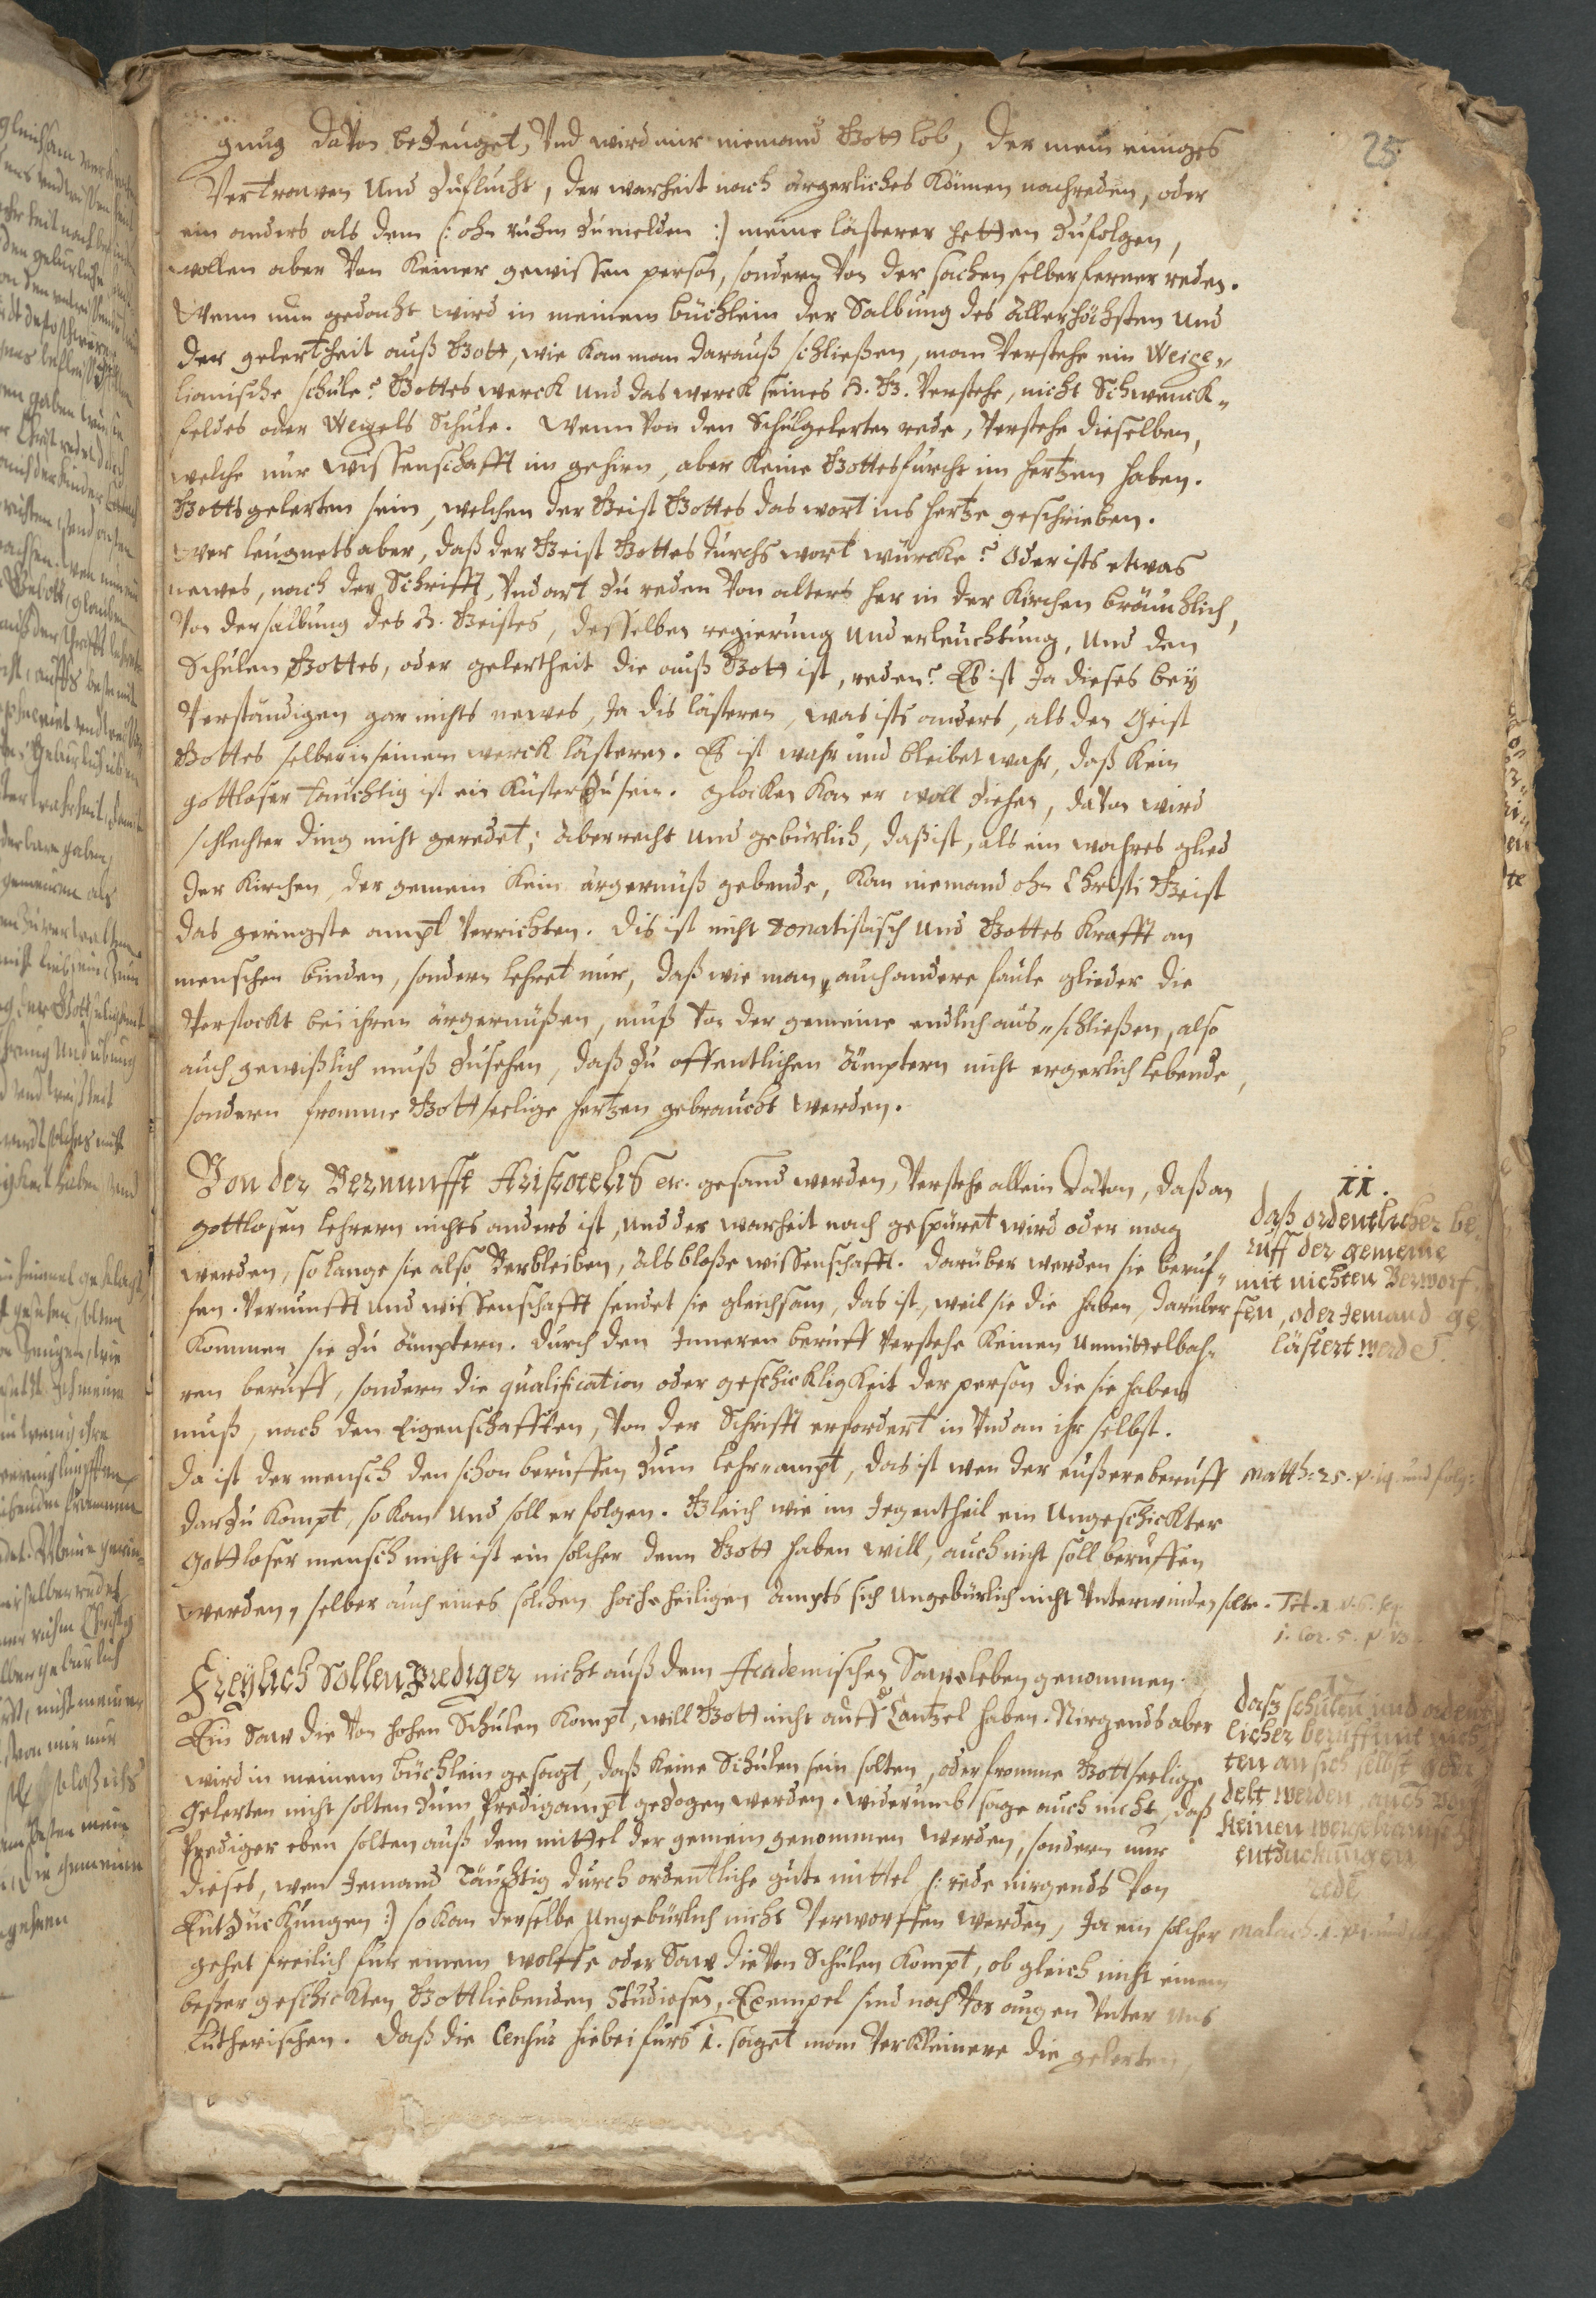 25.
gnug davon bezeuget, Und wird mir niemand Gott lob, der mein einiges
Vertrawen Und Zuflucht, der warheit nach ärgerliches Können nachreden, oder
ein anders als dem (: ohn ruhm zumelden :) meine lästerer hetten zufolgen,
wollen aber Von Keiner gewissen person, sondern Von der sachen selber ferner reden.
Wenn nun gedacht wird in meinem büchlein der Salbung des Allerhöchsten Und
der gelertheit auß Gott, wie kan man darauß schließen, man Verstehe ein Weige„
lianische schule? Gottes werck Und das werck seines H. G. Verstehe, nicht Schwenck„
feldes oder Weigels Schule. Wenn Von den Schulgelerten rede, Verstehe dieselben,
welche nur wissenschafft im gehirn, aber Keine Gottesfurcht im hertzen haben.
Gottsgelerten sein, welchen der Geist Gottes das wort ins hertze geschrieben.
Wer leugnets aber, daß der Geist Gottes durchs wort würcke? Oder ists etwas
newes, nach der Schrifft, Und art zu reden Von alters her in der Kirchen bräuchlich,
Von der salbung des H. Geistes, desselben regierung Und erleuchtung, Und den
Schulen Gottes, oder gelertheit die auß Gott ist, reden? Es ist Ja dieses beÿ
Verständigen gar nichts newes, Ja dis lästeren, was ists anders, als den Geist
Gottes selber in seinem werck lästeren. Es ist wahr und bleibet wahr, daß Kein
gottloser tauchtig ist ein Küster zu sein. Glocken Kan er woll ziehen, davon wird
schlechter ding nicht geredet; aber recht Und gebürlich, daß ist, als ein wahres glied
der Kirchen, der gemein Kein ärgernüß gebende, Kan niemand ohn Christi Geist
das geringste ampt Verrichten. Dis ist nicht donatistisch Und Gottes Krafft an
menschen binden, sondern lehret nur, daß wie man auch andere faule glieder die
Verstockt bei ihren ärgernüßen, muß Von der gemeine endlich aus„schließen, also
auch gewißlich muß zusehen, daß zu offentlichen ämptern nicht ergerlich lebende,
sondern fromme Gottseelige hertzen gebraucht werden.
Von der Vernunfft Aristotelis etc. gesand werden, Verstehe allein davon, daß an
gottlosen lehrern nichts anders ist, und der warheit nach gespüret wird oder mag
werden, so lange sie also Verbleiben, als bloße wissenschafft. Darüber werden sie beruf„
fen. Vernunfft Und wissenschafft sendet sie gleichsam, das ist, weil sie die haben, darüber
Kommen sie zu ämptern. Durch den Inneren beruff Verstehe Keinen Unmittelbah„
ren beruff, sondern die qualification oder geschickligkeit der person die sie haben
muß, nach den Eigenschafften, Von der Schrifft erfordert in Und an ihr selbst.
Da ist der mensch den schon beruffen zum lehr„ampt, das ist wen der eußere beruff
darzu kompt, so kan Und soll er folgen. Gleich wie im Jegentheil ein Ungeschickter
Gottloser mensch nicht ist ein solcher denn Gott haben will, auch nicht soll beruffen
werden, selber auch eines solchen hochheiligen ampts sich Ungebürlich nicht Unterwinden solte.
ii.
daß ordentlicher be„
ruff der gemeine
mit nichten Verworf„
fen, oder Jemand ge„
lästert werde.
Matth: 25. p. 14. und folg:
Tit. 1. v. 6. seq
1. Cor. 5. p 13.
Freÿlich Sollen Prediger nicht auß dem Academischen Sawleben genommen
Ein Saw die Von hohen Schulen Kompt, will Gott nicht auffs Cantzel haben. Nirgends aber
wird in meinem büchlein gesagt, daß keine Schulen sein solten, oder fromme Gottseelige
Gelerten nicht solten zum Predigampt gezogen werden. Widerumb sage auch nicht, daß
Prediger eben solten auß dem mittel der gemein genommen werden, sondern nur
dieses, wen Jemand täuchtig durch ordentliche gute mittel (: rede nirgends Von
Entzückungen :) so kan derselbe Ungebürlich nicht Verworffen werden, Ja ein solcher
gehet freilich für einem wolffe oder Saw die Von Schulen kompt, ob gleich nicht einem
beßer geschickten Gottliebenden Studiosen, Exempel sind noch Vor augen Unter Uns
Lutherischen. Daß die Censur hiebei fürs 1. saget man Verkleinere die gelerten,
daß schulen und ordent
licher beruff mit nich
ten an sich selbst
delt werden, auch von
Keinen
entzuckungen
rede
Malach. 1.